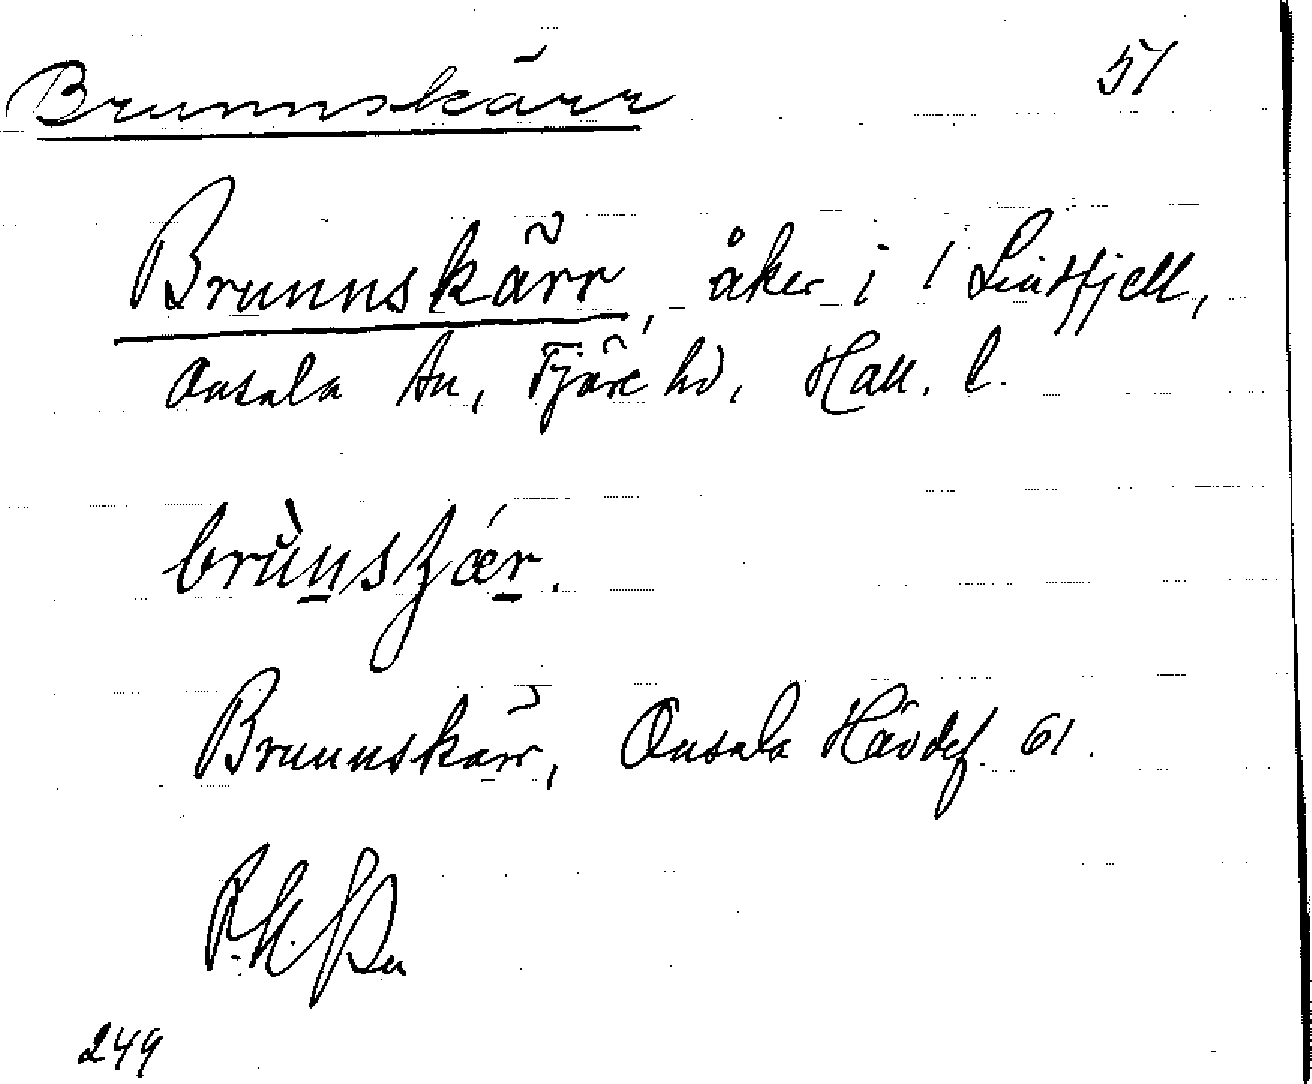 Brunnskärr 51
Brunnskärr, åker i 1 Lindfjell,
Onsala sn, Fjäre hd, Hall. l.
Brunnskärr, Onsala Hävdef. 61.
249